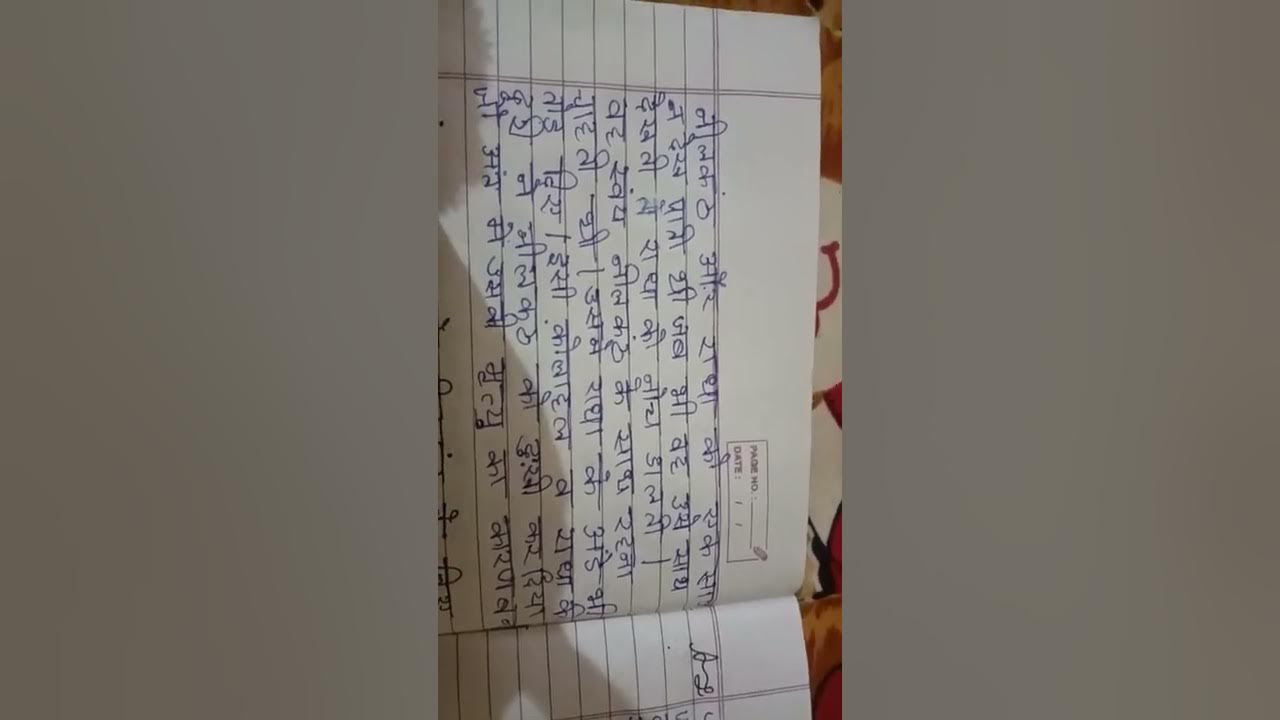 PAGE NO.:
DATE: / /
नीलकंठ और राधा को एक साथ
न देख पाती थी जब भी वह उसे साथ
देखती तो राधा को नोच डालती।
वह स्वंय नीलकंठ के साथ रहना
चाहती थी। उसने राधा के अंडे भी
तोड़ दिए। इसी कोलाहल व राधा की
दूरी ने नीलकंठ को दुखी कर दिया
जो अंत में उसकी मृत्यु का कारण बना
A-2